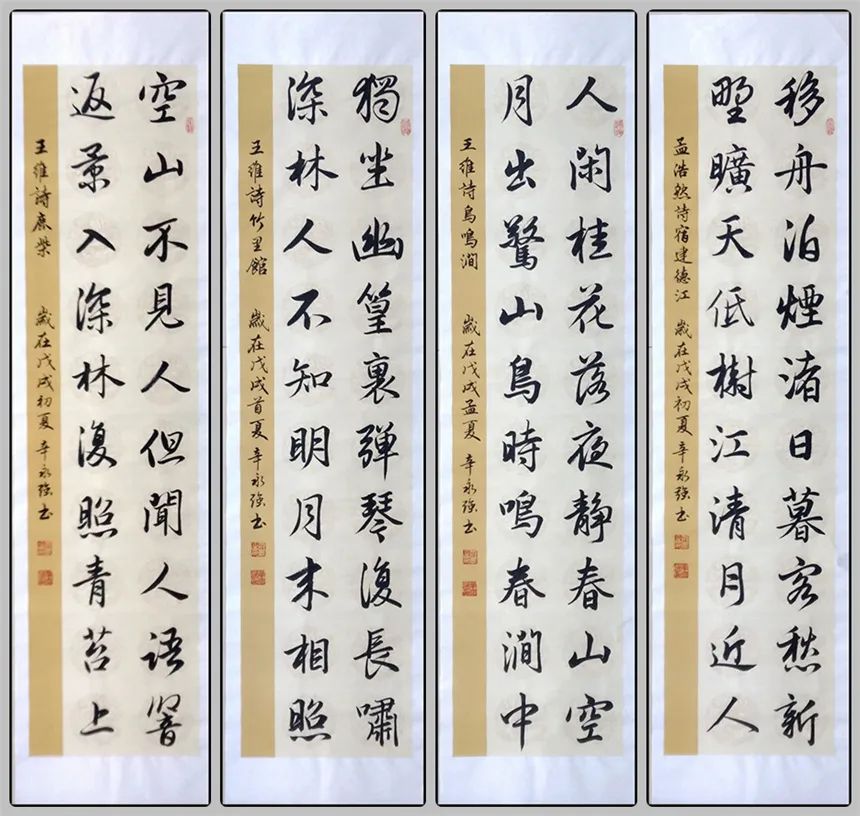 移舟泊煙渚日暮客愁新
野曠天低樹江清月近人
孟浩然詩宿建德江 歲在戊戌初夏 辛永強书
人閑桂花落夜靜春山空
月出驚山鳥時鳴春澗中
王維詩鳥鳴澗 歲在戊戌孟夏 辛永強书
獨坐幽篁裏彈琴復長嘯
深林人不知明月来相照
王維詩竹里館 歲在戊戌首夏 辛永強书
空山不見人但聞人語響
返景入深林復照青苔上
王維詩鹿柴 歲在戊戌初夏 辛永強书